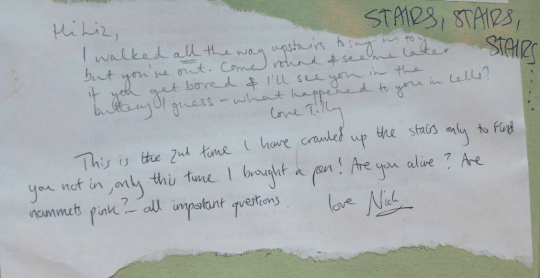 STAIRS, STAIRS,
STAIRS
Hi Liz,
I walked all the way upstairs to say hi to you
but you're out. Come round & see me later
if you get bored & I'll see you in the
buttery I guess - what happened to you in cells?
Love Tilly
This is the 2nd time I have crawled up the stairs only to find
you not in, only this time I brought a pen! Are you alive? Are
mammets pink? - all important questions.
love Nich